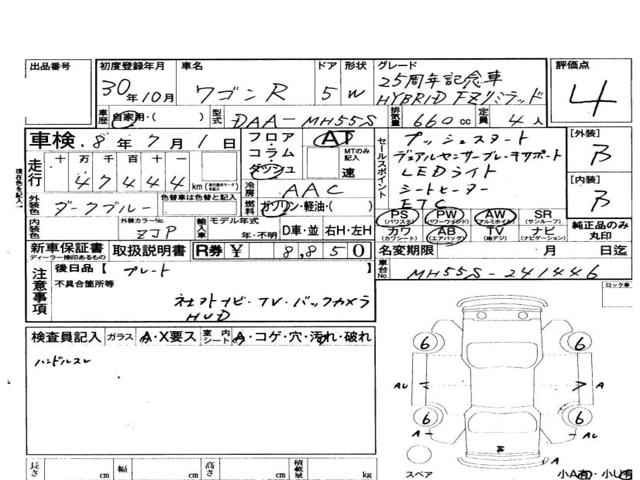 出品番号 初度登録年月 車名 ドア 形状 グレード 評価点
30年10月 ワゴンR 5 W 25周年記念車
HYBRID FZリミテッド 4
車歴 自家用・( ) 型式 DAA-MH55S 排気量 660cc 定員 4人
車検 8年7月1日 フロア・コラム・ダッシュ AT MTのみ記入 速
走行 十万千百十一
47444 km
冷房 AAC
燃料 ガソリン・軽油・( )
セールスポイント プッシュスタート
デュアルセンサーブレーキサポート
LEDライト
シートヒーター
ETC
[外装] B
[内装] B
現在色を記入→
外装色 ダークブルー 色替車は色替と記入
内装色 外装カラーNo. ZJP 輸入車 モデル年式 年・不明 D車・並 右H・左H
PS (パワステ) PW (パワーウインド) AW (アルミホイル) SR (サンルーフ)
カワ (カワシート) AB (エアバッグ) TV (地デジ) ナビ (ナビゲーション)
純正品のみ丸印
新車保証書 ディーラー捺印あるもの 取扱説明書 R券 ¥ 8,850
名変期限 月 日迄
車台No. MH55S-241446
注意事項 後日品【 プレート 】
不具合箇所等
社外ナビ・TV・バックカメラ
HUD
ロック車
検査員記入 ガラス A・X要ス 室内シート A・コゲ・穴・汚れ・破れ
ハンドルスレ
6 6
AU A
6 6
A AU
A
スペア 小A有・小U有
長さ cm 幅 cm 高さ cm 積載量 kg